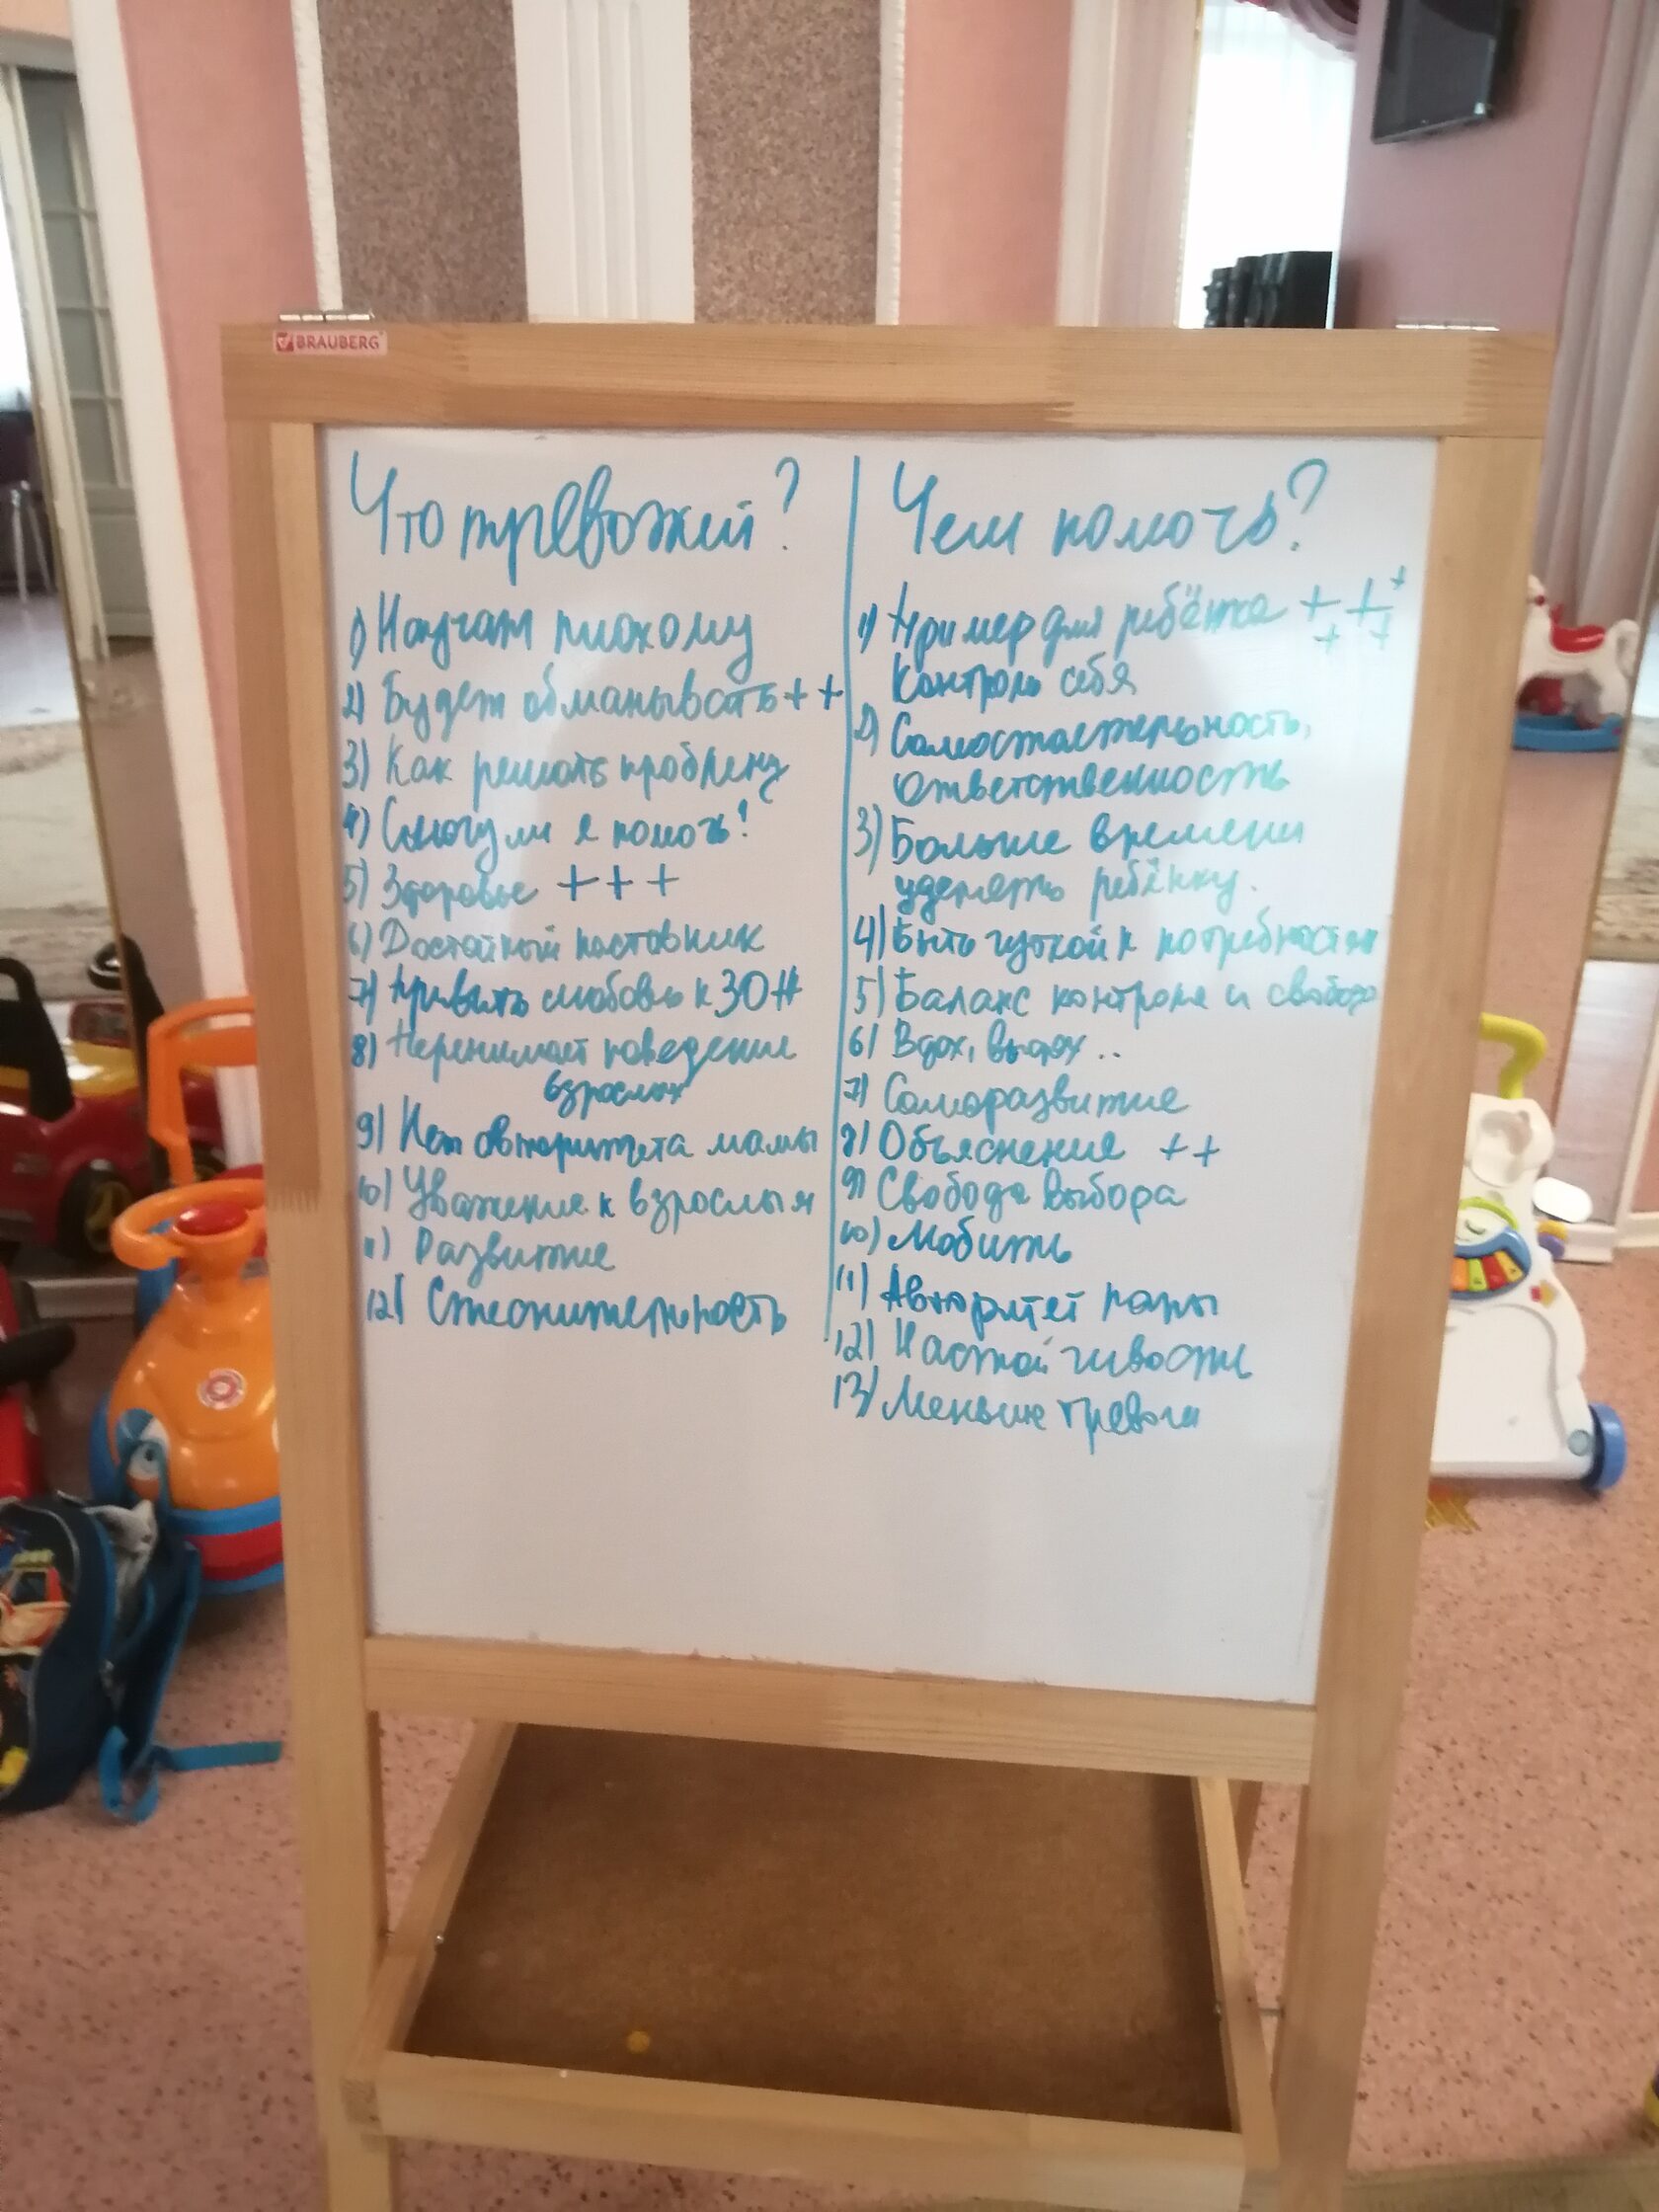 BRAUBERG
Что тревожит?
1) Научат плохому
2) Будет обманывать + +
3) Как решать проблему
4) Смогу ли я помочь?
5) Здоровье + + +
6) Достойный наставник
7) Привить любовь к ЗОЖ
8) Перенимает поведение
взрослых
9) Нет авторитета мамы
10) Уважение к взрослым
11) Развитие
12) Стеснительность
Чем помочь?
1) Пример для ребёнка + + + + +
Контроль себя
2) Самостоятельность,
ответственность
3) Больше времени
уделять ребёнку.
4) Быть чуткой к потребностям
5) Баланс контроля и свободы
6) Вдох, выдох ..
7) Саморазвитие
8) Объяснение + +
9) Свобода выбора
10) Любить
11) Авторитет папы
12) Настойчивость
13) Меньше тревоги